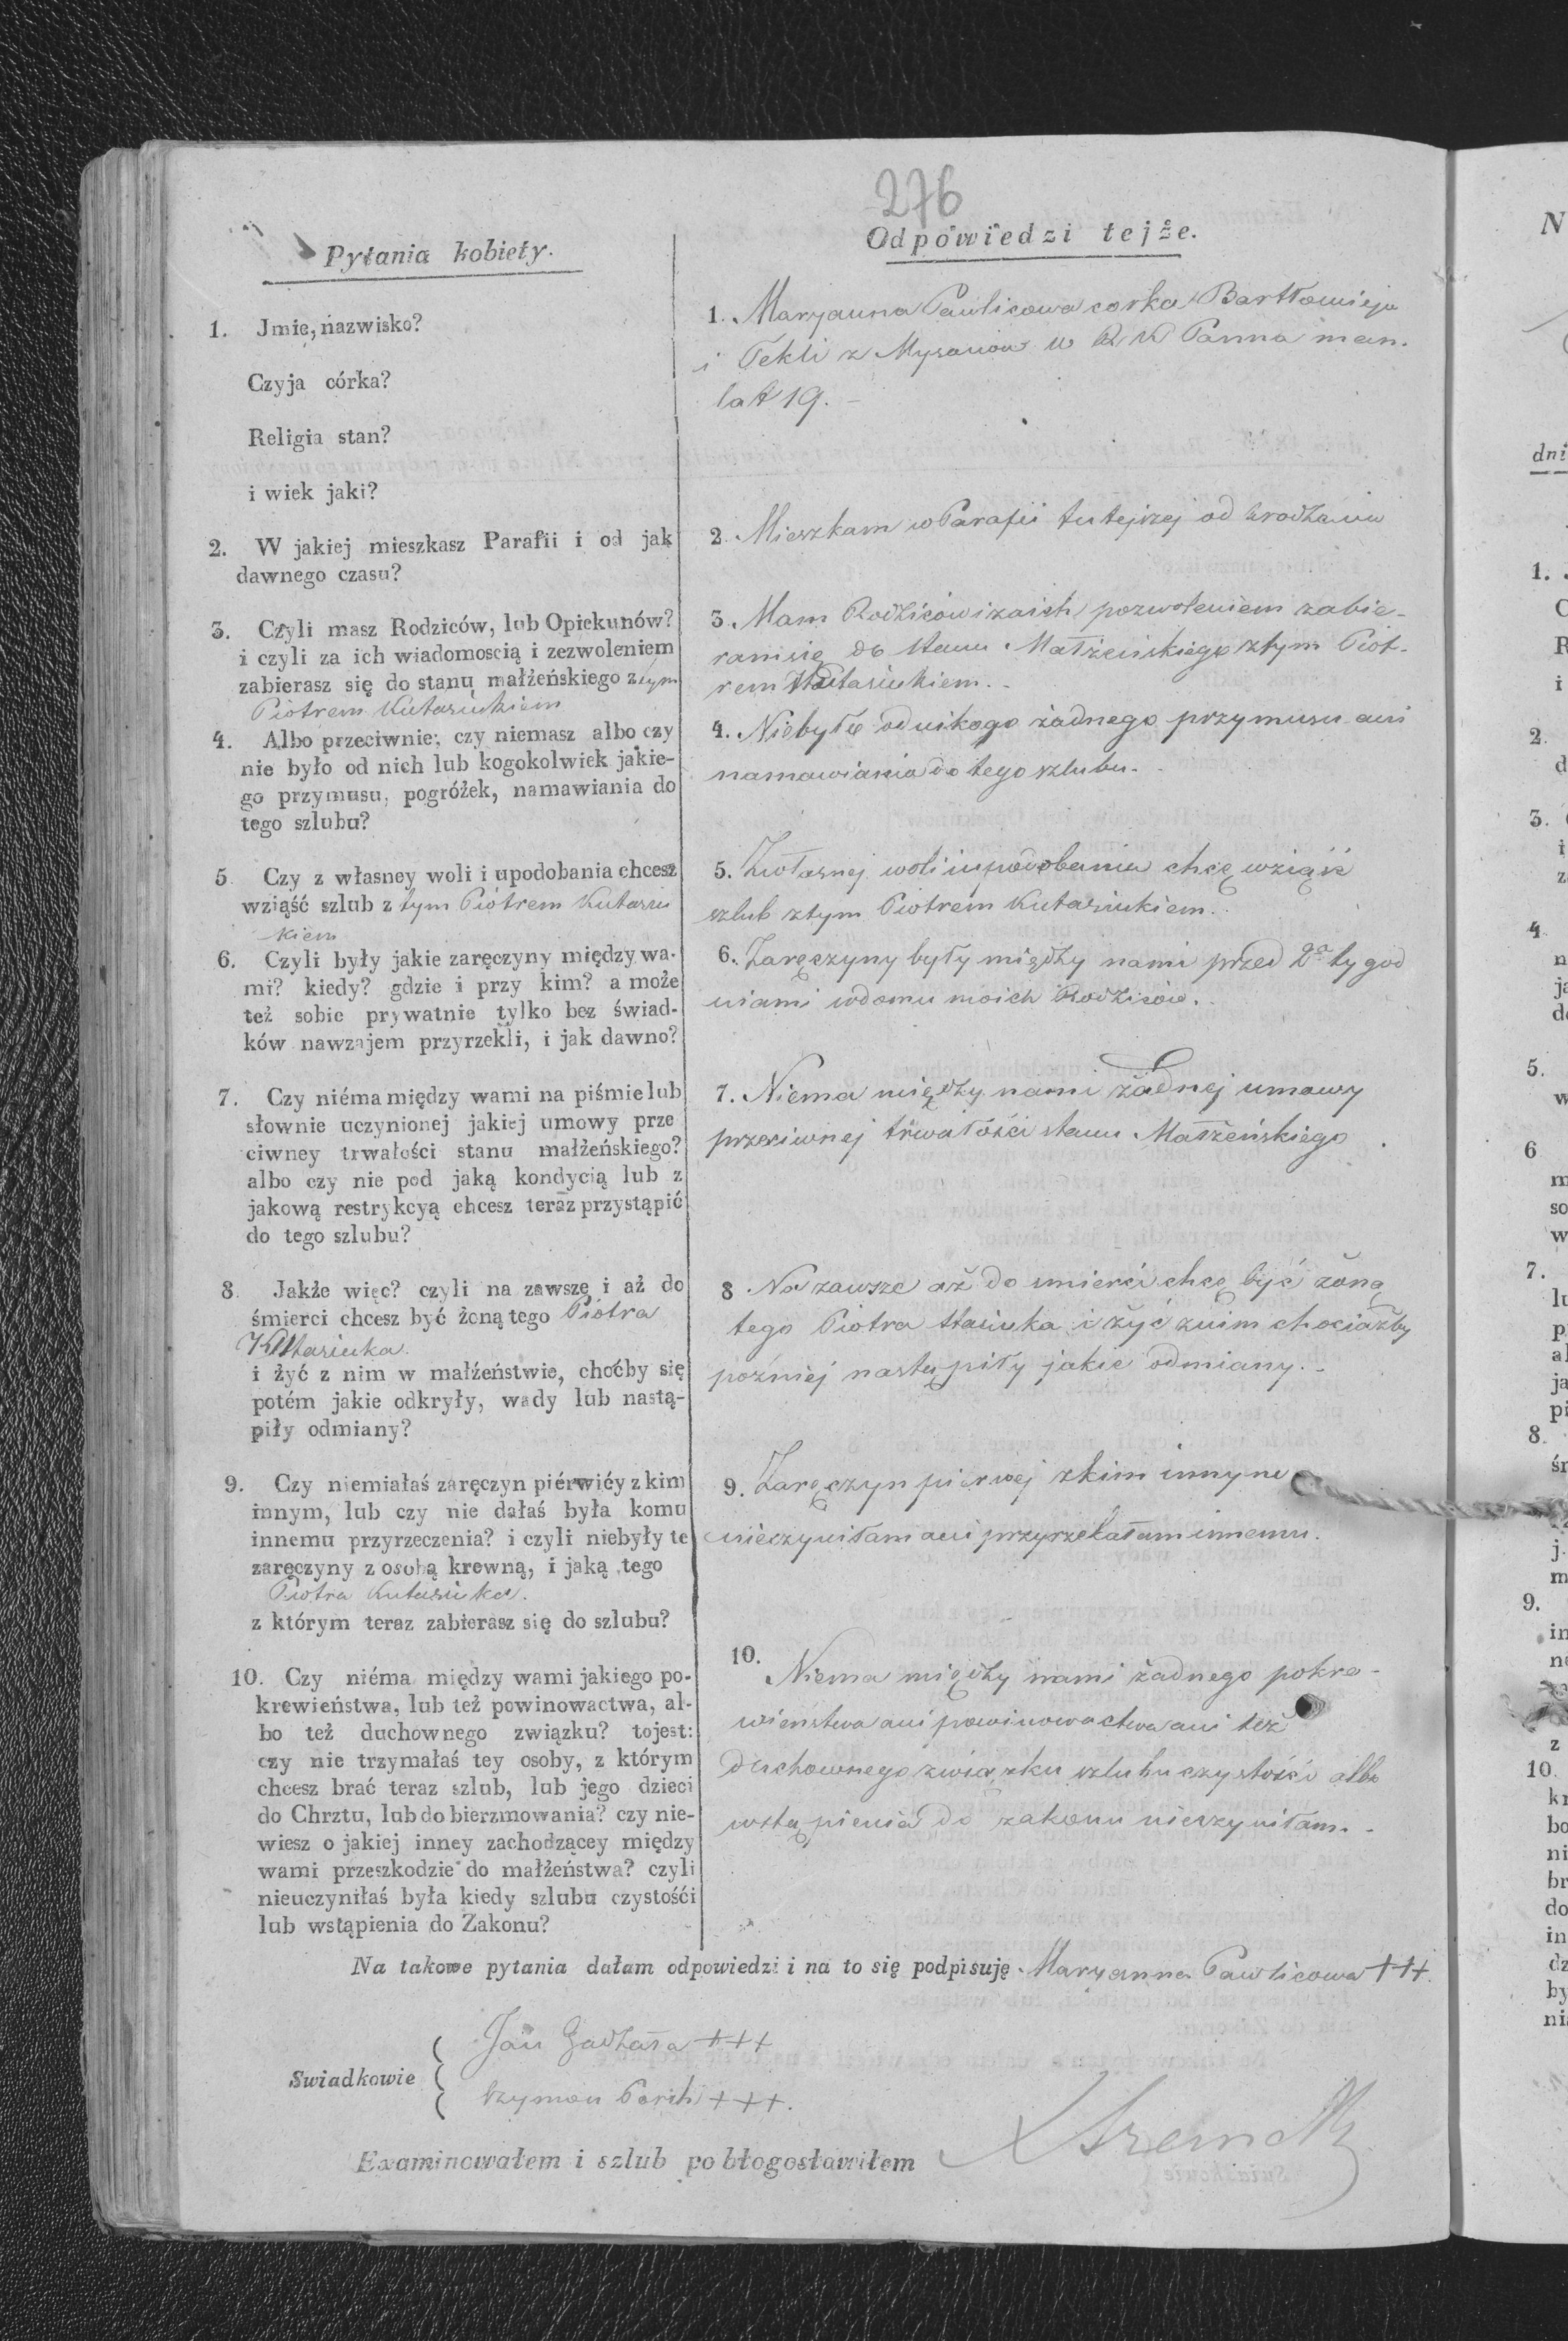 276
Pytania kobiety.
Odpowiedzi tejże.
1. Jmie, nazwisko?
Czyja córka?
Religia stan?
i wiek jaki?
1. Maryanna Pawlicowa corka Bartłomieja
i Tekli z Mysanow W R K Panna man.
lat 19. -
2. W jakiej mieszkasz Parafii i od jak
dawnego czasu?
2. Mieszkam w Parafii tutejszej od urodzenia
3. Czyli masz Rodziców, lub Opiekunów?
i czyli za ich wiadomoscią i zezwoleniem
zabierasz się do stanu małżeńskiego z tym
Piotrem Kutasiukiem
3. Mam Rodziców i zaich pozwoleniem zabie-
ram się do stanu Małżeńskiego z tym Piot-
rem Kutasiukiem. -
4. Albo przeciwnie; czy niemasz albo czy
nie było od nich lub kogokolwiek jakie-
go przymusu, pogróżek, namawiania do
tego szlubu?
4. Niebyło od nikogo żadnego przymusu ani
namawiania do tego szlubu. -
5. Czy z własney woli i upodobania chcesz
wziąść szlub z tym Piotrem Kutasiu
kiem
5. Zwłasnej woli i upodobania chcę wziąść
szlub z tym Piotrem Kutasiukiem.
6. Czyli były jakie zaręczyny między wa-
mi? kiedy? gdzie i przy kim? a może
też sobie prywatnie tylko bez świad-
ków nawzajem przyrzekli, i jak dawno?
6. Zaręczyny były między nami przed 2a tygod
niami wdomu moich Rodziców. -
7. Czy niéma między wami na piśmie lub
słownie uczynionej jakiej umowy prze
ciwney trwałości stanu małżeńskiego?
albo czy nie pod jaką kondycią lub z
jakową restrykcyą chcesz teraz przystąpić
do tego szlubu?
7. Niema między nami żadnej umowy
przeciwnej trwałości stanu Małżeńskiego
8. Jakże więc? czyli na zawsze i aż do
śmierci chcesz być żoną tego Piotra
Kutasiuka.
i żyć z nim w małżeństwie, choćby się
potém jakie odkryły, wady lub nastą-
piły odmiany?
8 Na zawsze aż do smierci chcę być żoną
tego Piotra Kutasiuka i żyć znim chociażby
pożniej nastąpiły jakie odmiany. -
9. Czy niemiałaś zaręczyn piérwiéy z kim
innym, lub czy nie dałaś była komu
innemu przyrzeczenia? i czyli niebyły te
zaręczyny z osobą krewną, i jaką tego
Piotra Kutasiuka.
z którym teraz zabierasz się do szlubu?
9. Zaręczyn pierwej zkim innym
nieczyniłam ani przyrzekałam innemu.
10. Czy niéma między wami jakiego po-
krewieństwa, lub też powinowactwa, al-
bo też duchownego związku? tojest:
czy nie trzymałaś tey osoby, z którym
chcesz brać teraz szlub, lub jego dzieci
do Chrztu, lub do bierzmowania? czy nie-
wiesz o jakiej inney zachodzącey między
wami przeszkodzie do małżeństwa? czyli
nieuczyniłaś była kiedy szlubu czystośći
lub wstąpienia do Zakonu?
10. Niema między nami żadnego pokre-
wienstwa ani powinowactwa ani też
duchownego zwiazku szlubu czystośći albo
wstąpienia do zakonu nieczyniłam. -
Na takowe pytania dałam odpowiedzi i na to się podpisuję Maryanna Pawlicowa +++.
Swiadkowie
Jan +++
Szymon +++.
Examinowałem i szlub pobłogosławiłem